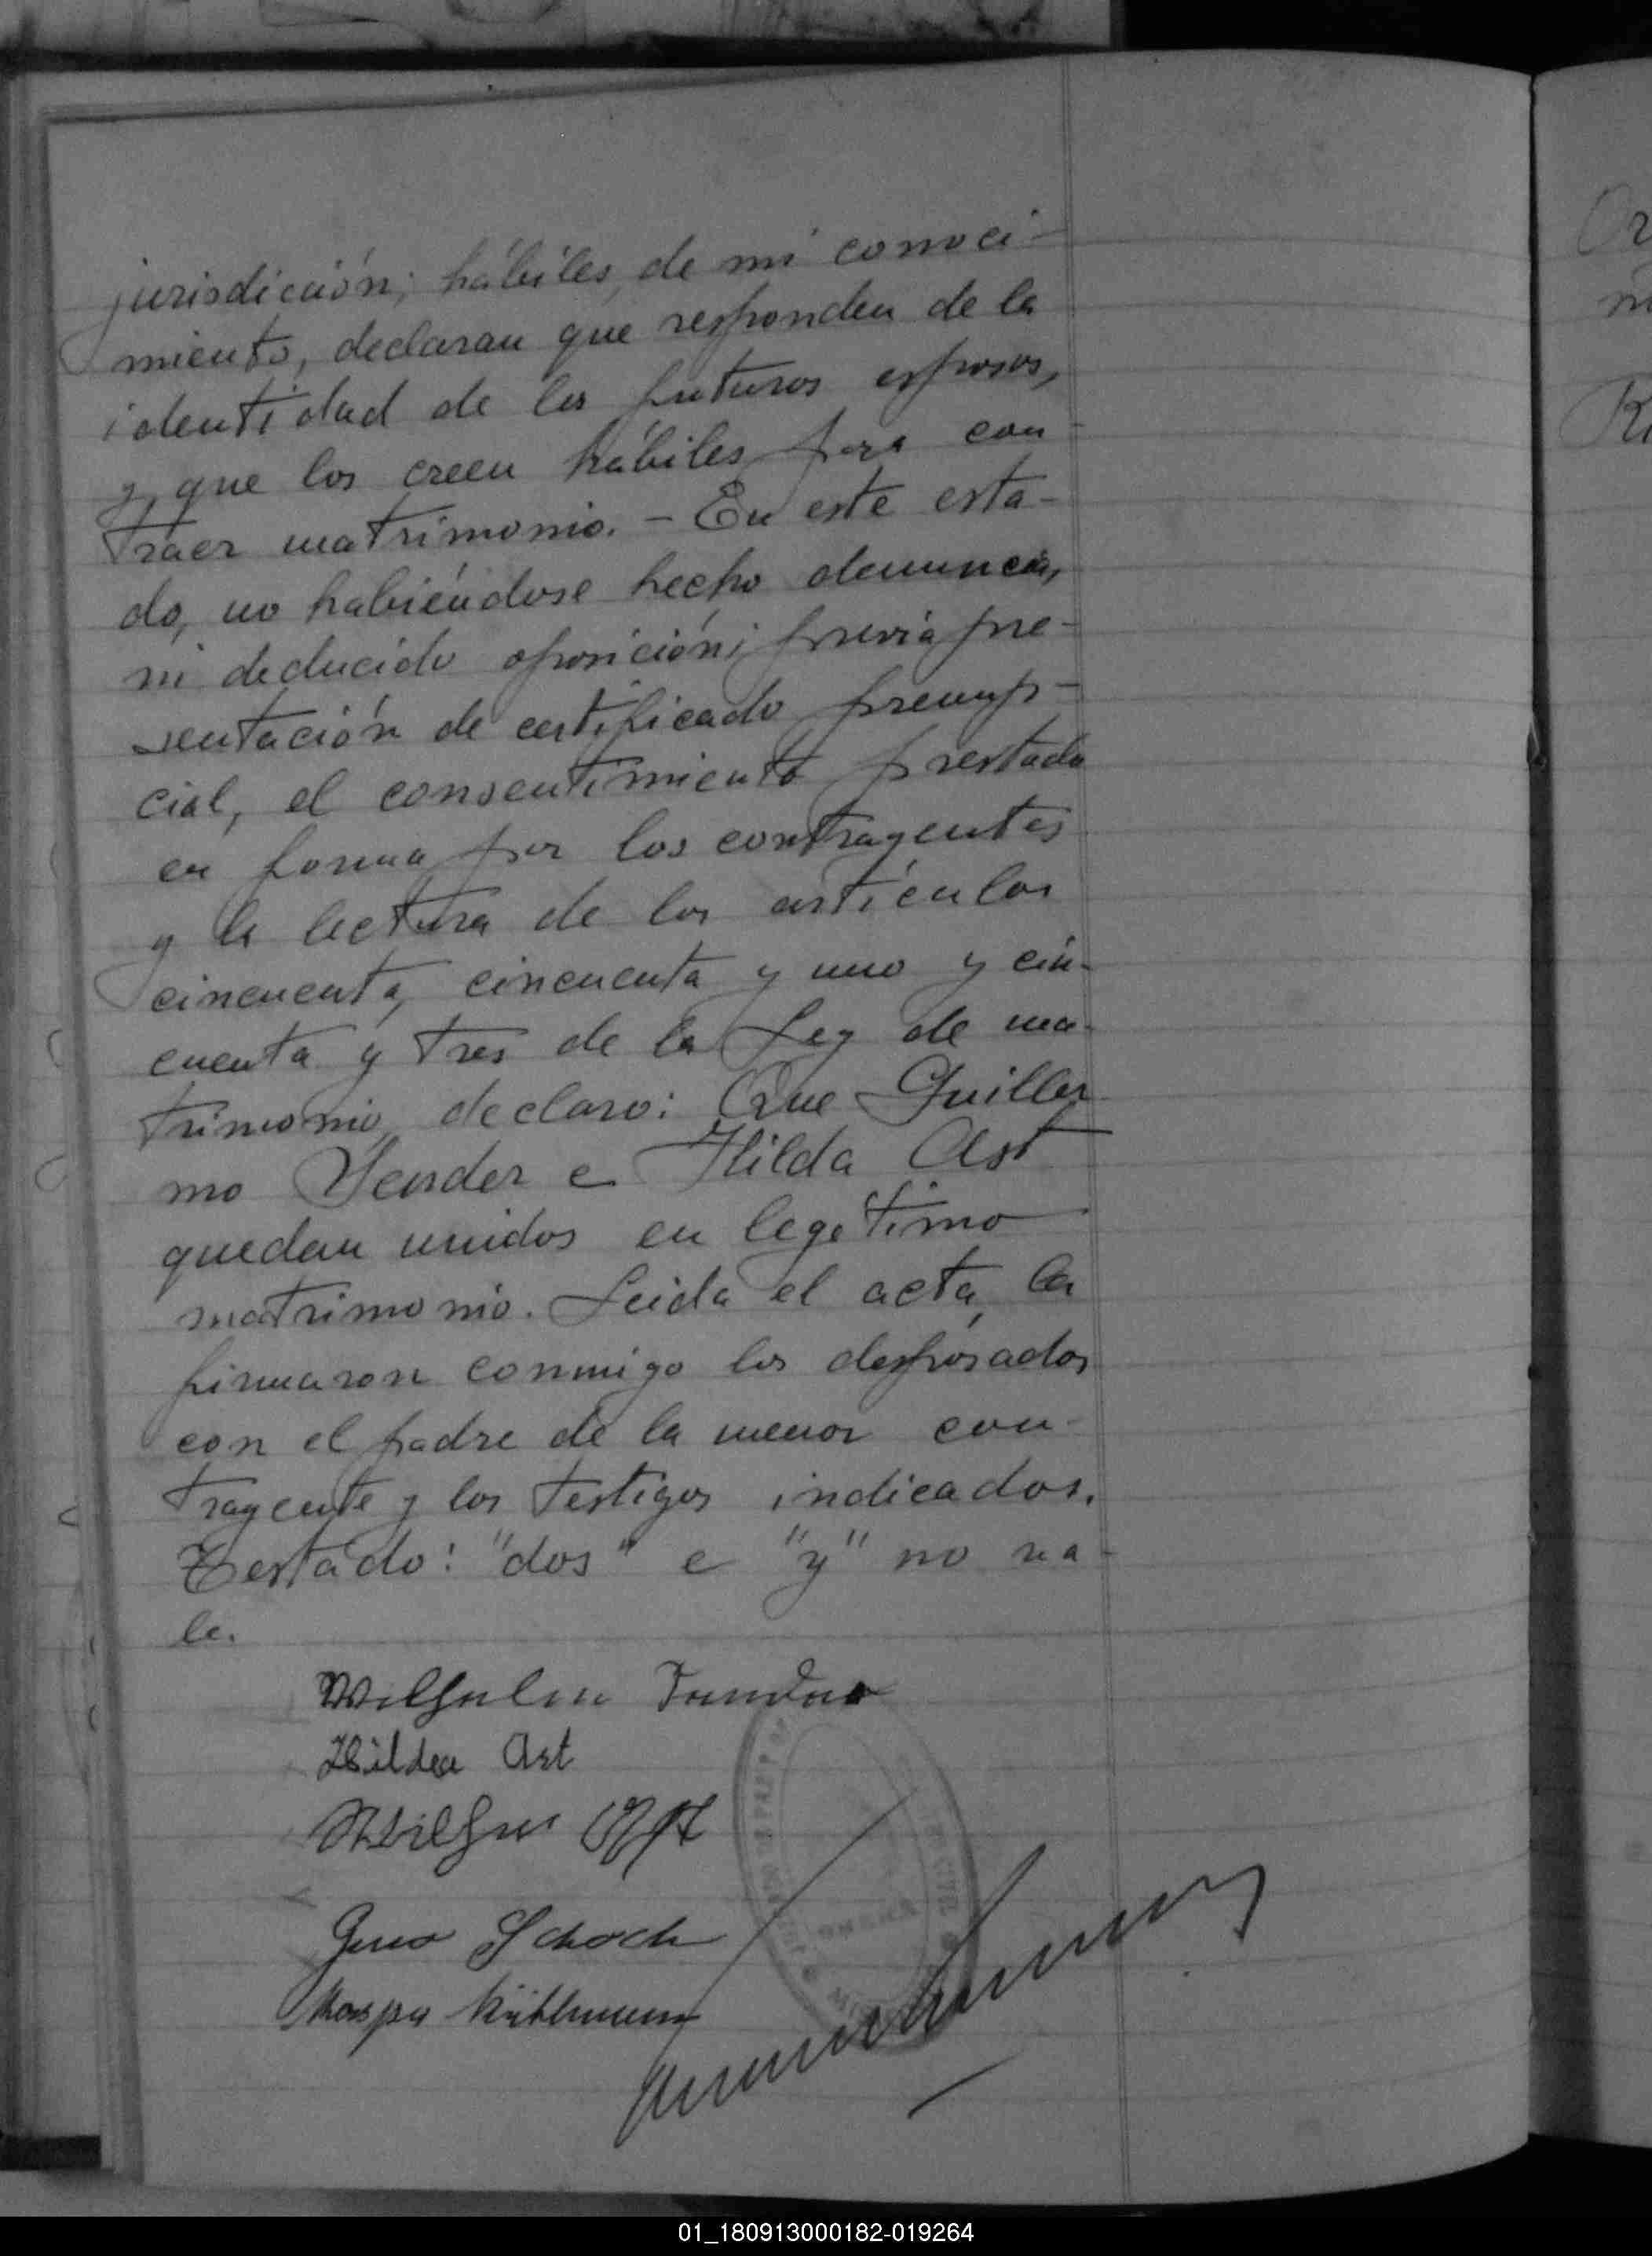 jurisdicción; hábiles, de mi conoci-
miento, declaran que responden de la
identidad de los futuros esposos,
y, que los creen hábiles para con-
traer matrimonio. - En este esta-
do, no habiéndose hecho denuncia,
ni deducido oposición; previa pre-
sentación de certificado prenup-
cial, el consentimiento prestado
en forma por los contrayentes
y la lectura de los artículos
cincuenta, cincuenta y uno y cin-
cuenta y tres de la Ley de ma-
trimonio, declaro: Que Guiller
mo Sender e Hilda Ast
quedan unidos en legítimo
matrimonio. Leida el acta, la
firmaron conmigo los desposados
con el padre de la menor con-
trayente y los testigos indicados.
Testado: "dos" e "y" no va-
le.
Wilhelm
Hilda Ast
Schoch
Or
m
01_180913000182-019264